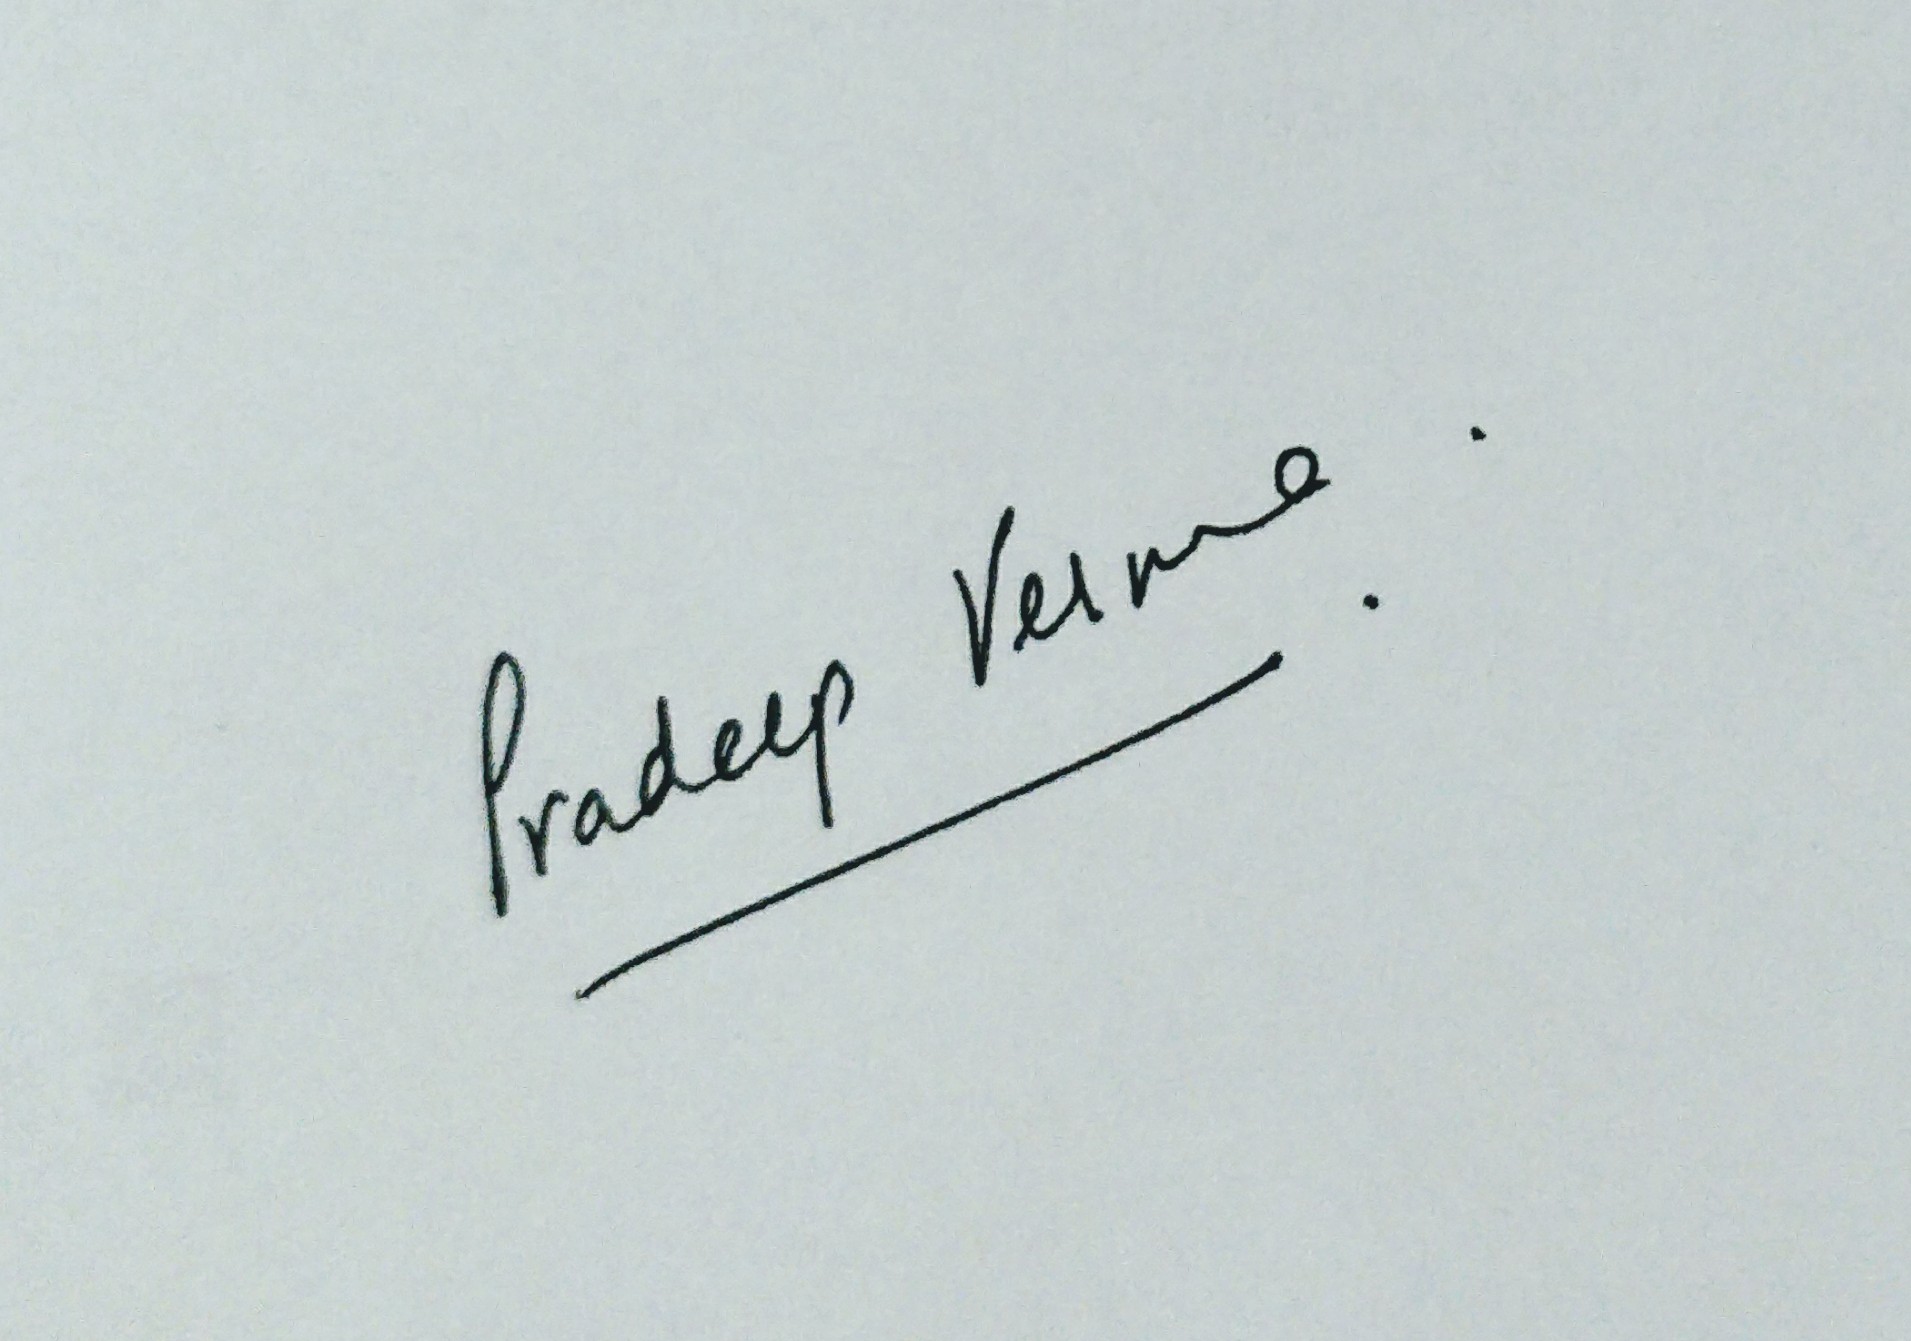 Pradeep Verma